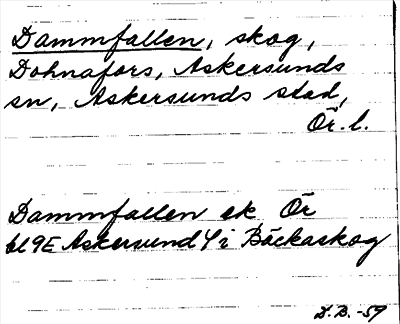 Dammfallen, skog,
Dohnafors, Askersunds
sn, Askersunds stad,
Ör. l.
Dammfallen ek Ör
bl 9E Askersund 4 i Bäckaskog
D.B. -59